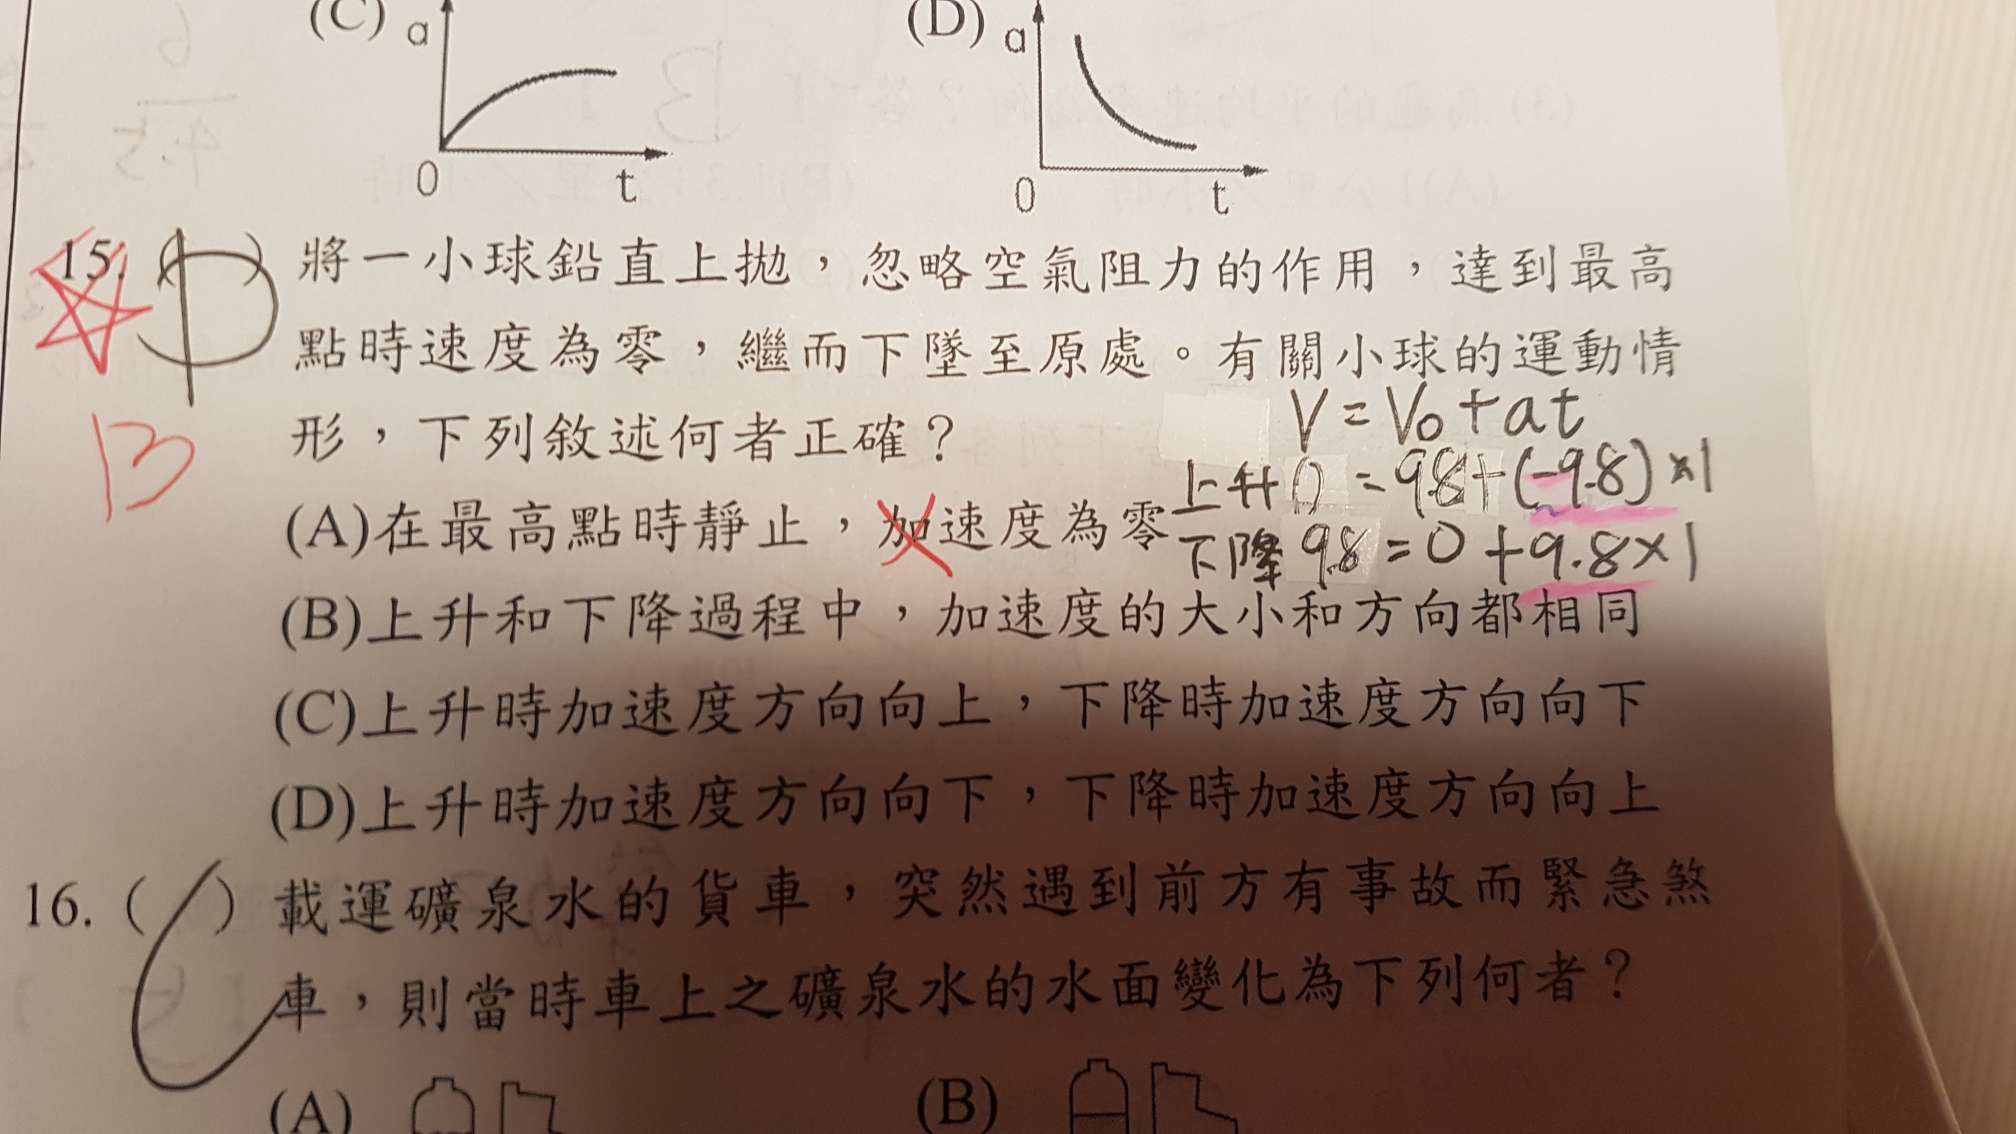 (C) a
0 t
(D) a
0 t
15. ( ) 將一小球鉛直上拋，忽略空氣阻力的作用，達到最高
點時速度為零，繼而下墜至原處。有關小球的運動情
形，下列敘述何者正確？
B
V = V0 + at
上升 0 = 9.8 + (-9.8) × 1
下降 9.8 = 0 + 9.8 × 1
(A)在最高點時靜止，加速度為零
(B)上升和下降過程中，加速度的大小和方向都相同
(C)上升時加速度方向向上，下降時加速度方向向下
(D)上升時加速度方向向下，下降時加速度方向向上
16. ( ) 載運礦泉水的貨車，突然遇到前方有事故而緊急煞
車，則當時車上之礦泉水的水面變化為下列何者？
(A) (B)